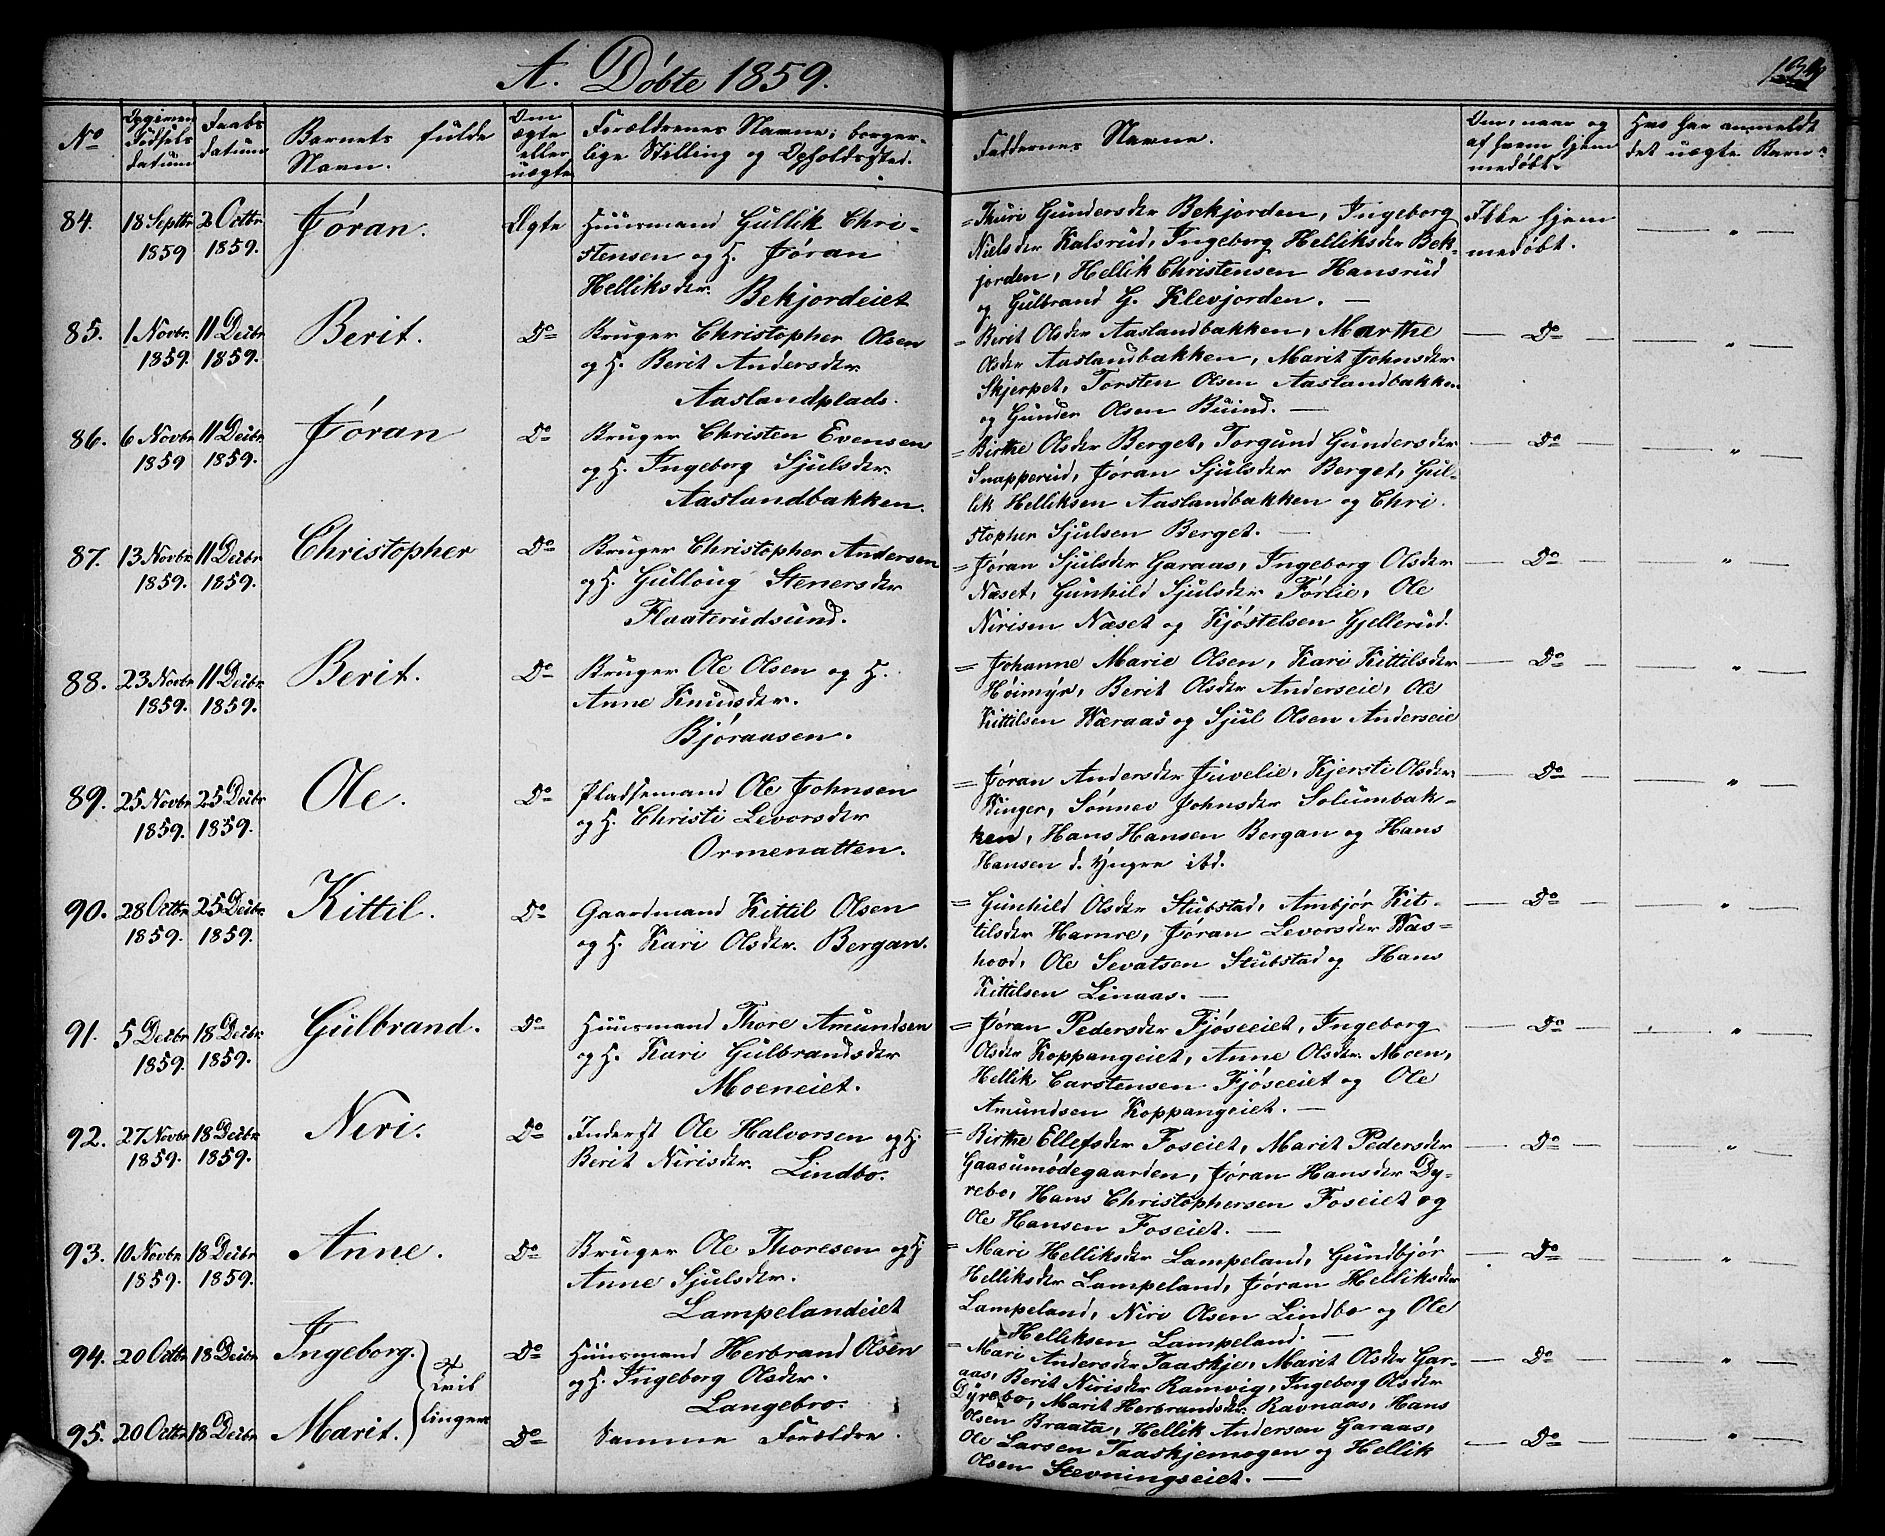 A. Døbte 1859.
No
Opgiven Fødsels datum
Daabs datum
Barnets fulde Navn.
Om ægte eller uægte
Forældrenes Navne, borgerlige Stilling og Opholdssted.
Faddernes Navne.
Om, naar og af hvem hjemmedøbt.
Hvo har anmeldt det uægte Barn
84. 18 Septbr 1859 2 Octbr 1859. Jøran. Ægte
Huusmand Gullik Chri-
stensen og H. Jøran
Helliksdr. Bekjordeiet
= Thuri Gundersdr Bekjorden, Ingeborg
Nielsdr Kalsrud, Ingeborg Helliksdr Bek-
jorden, Hellik Christensen Hansrud
og Gulbrand G. Klevjorden. —
Ikke hjem
medøbt.
— " —
85. 1 Novbr. 1859. 11 Decbr 1859. Berit. Do
Bruger Christopher Olsen
og H. Berit Andersdr.
Aaslandplads.
= Berit Olsdr Aaslandbakken, Marthe
Olsdr Aaslandbakken, Marit Johnsdr
Skjerpet, Torsten Olsen Aaslandbakken
og Gunder Olsen Buind. —
— Do — — " —
86. 6 Novbr 1859 11 Decbr 1859. Jøran Do
Bruger Christen Evensen
og H. Ingeborg Sjulsdr.
Aaslandbakken.
= Birthe Olsdr Berget, Torgund Gundersdr
Snapperud, Jøran Sjulsdr Berget, Gul-
lik Helliksen Aaslandbakken og Chri.
stopher Sjulsen Berget. —
— Do — — " —
87. 13 Novbr 1859. 11 Decbr 1859. Christopher Do
Bruger Christopher Andersen
og H. Gulloug Stenersdr
Flaaterudsund.
= Jøran Sjulsdr Garaas, Ingeborg Olsdr
Næset, Gunhild Sjulsdr Førlie, Ole
Nirisen Næset og Kjøstelsen Gjellerud.
— Do — — " —
88. 23 Novbr 1859. 11 Decbr 1859. Berit. Do
Bruger Ole Olsen og H.
Anne Knudsdr.
Bjøraasen.
= Johanne Marie Olsen, Kari Kittilsdr
Høimyr, Berit Olsdr Anderseie, Ole
Kittilsen Væraas og Sjul Olsen Anderseie
— Do — — " —
89. 25 Novbr 1859. 25 Decbr 1859. Ole. Do
Pladsemand Ole Johnsen
og H. Christi Levorsdr
Ormenatten.
= Jøran Andersdr Juvelie, Kjersti Olsdr
Vinger, Sønnev Johnsdr Solumbak-
ken, Hans Hansen Bergan og Hans
Hansen d. Yngre ibd.
— Do — — " —
90. 28 Octbr 1859. 25 Decbr. 1859. Kittil. Do
Gaardmand Kittil Olsen
og H. Kari Olsdr. Bergan.
= Gunhild Olsdr Stubstad, Ambjør Kit-
tilsdr Hamre, Jøran Levorsdr Vas-
hovd, Ole Sevatsen Stubstad og Hans
Kittilsen Linaas. —
— Do — — " —
91. 5 Decbr 1859. 18 Decbr. 1859. Gulbrand. Do
Huusmand Thore Amundsen
og H. Kari Gulbrandsdr
Moeneiet.
= Jøran Pedersdr Fjøseeiet, Ingeborg
Olsdr Koppangeiet, Anne Olsdr. Moen,
Hellik Carstensen Fjøseeiet og Ole
Amundsen Koppangeiet. —
— Do — — " —
92. 27 Novbr 1859. 18 Decbr. 1859. Neri. Do
Inderst Ole Halvorsen og H.
Berit Nirisdr. Lindbo.
= Birthe Ellefsdr Foseiet, Marit Pedersdr
Gaasumødegaarden, Jøran Hansdr Dy-
rebo, Hans Christophersen Foseiet og
Ole Hansen Foseiet. —
— Do — — " —
93. 10 Novbr. 1859. 18 Decbr 1859. Anne. Do
Bruger Ole Thoresen og H
Anne Sjulsdr.
Lampelandeiet
= Mari Helliksdr Lampeland, Gundbjør
Helliksdr Lampeland, Jøran Helliksdr
Lampeland, Niri Olsen Lindbo og Ole
Helliksen Lampeland. —
— Do — — " —
94. 20 Octbr 18 Decbr Ingeborg. Tvillinger Do
Huusmand Herbrand Olsen
og H. Ingeborg Olsdr.
Langebro.
= Mari Andersdr Taaskje, Marit Olsdr Gar-
aas, Berit Nirisdr Ramvig, Ingeborg Olsdr
Dyrebo, Marit Herbrandsdr. Ravnaas, Hans
Olsen Braata, Hellik Andersen Garaas,
Ole Larsen Taaskjemogen og Hellik
Olsen Stevningseiet. —
— Do — — " —
95. 20 Octbr 18 Decbr Marit. Do
Samme Forældre.
— Do — — " —